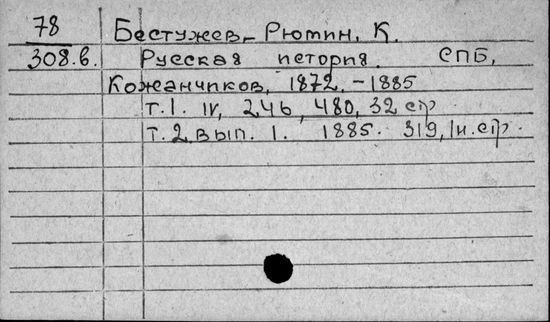 78 Бестужев-Рюмин, К.
308.в. Русская история. СПБ,
Кожанчиков, 1872. - 1885
т.1. IV, 246, 480, 32 стр
т.2. вып. 1. 1885. 319, 1н. стр.